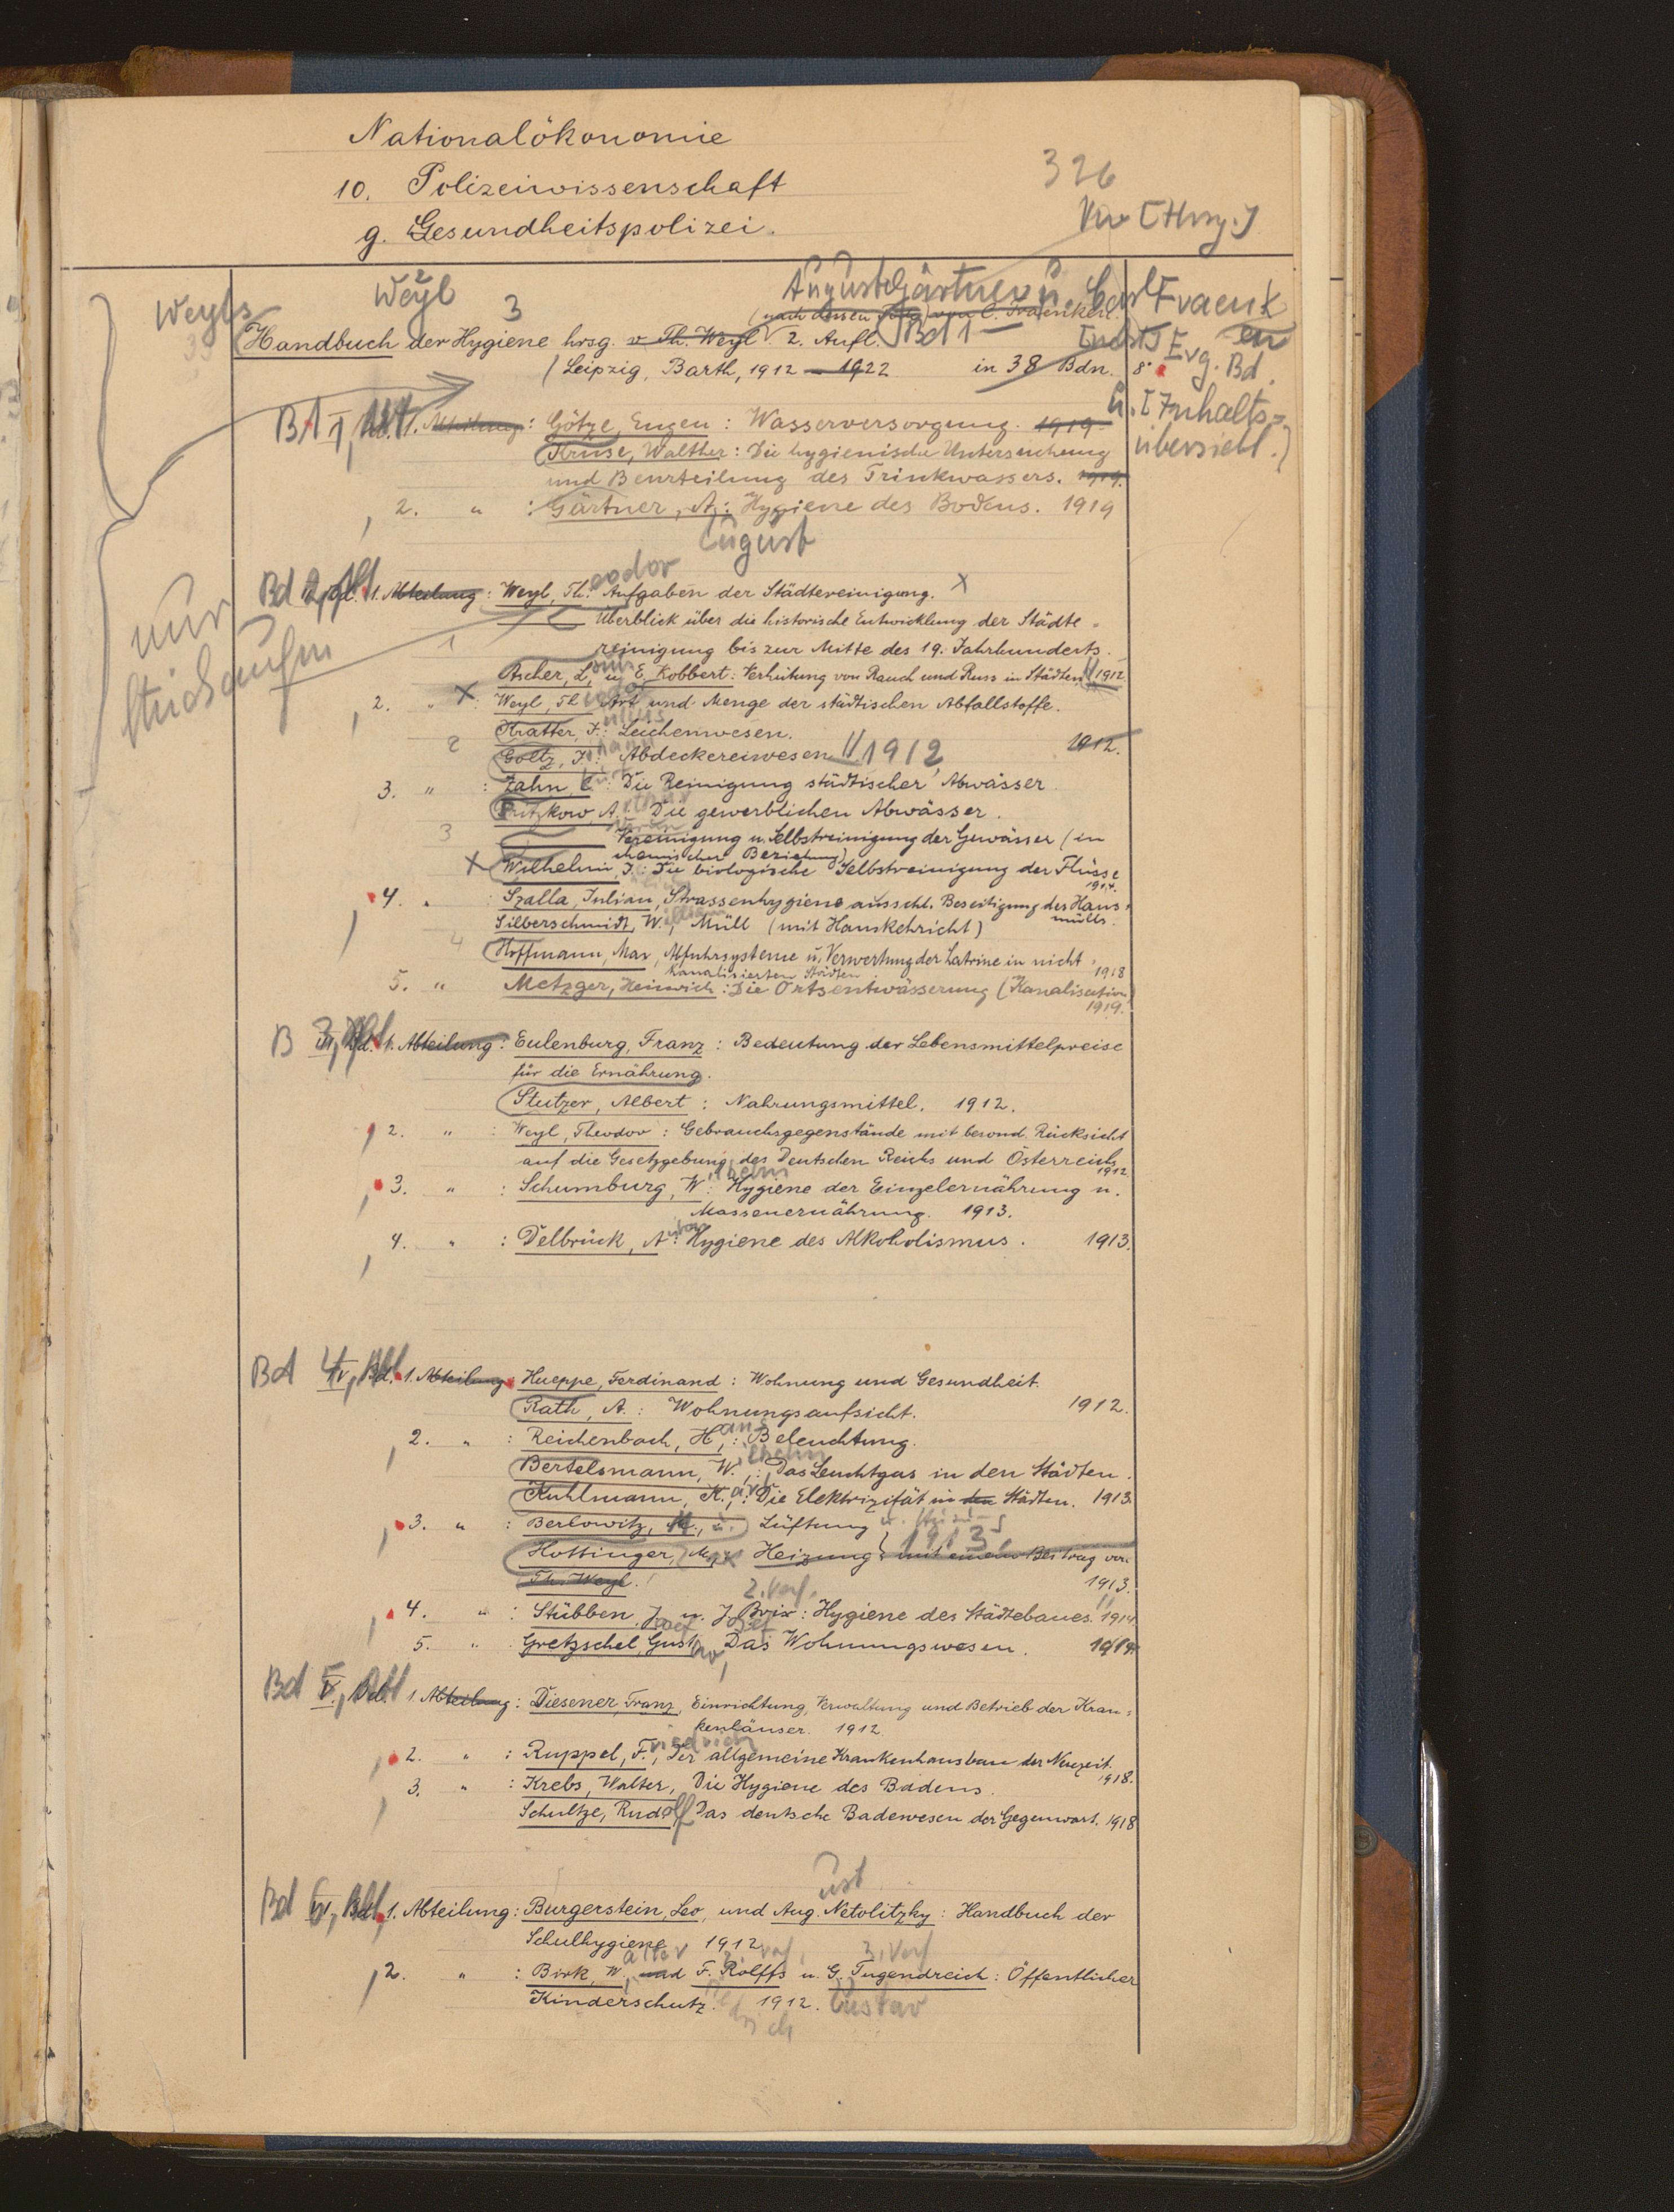 Nationalökonomie
10. Polizeiwissenschaft
g. Gesundheitspolizei.
326
[Hrsg.]
Weyls
Weyl
3
August Gärtner u. Carl Fraenk
en
(nach dessen Tode) von C. Fraenken.
Handbuch der Hygiene hrsg. v. Th. Weyl. 2. Aufl. Bd 1 —
(Leipzig, Barth, 1912 — 1922 in 38 Bdn. 8°
Erg. Bd.
u. [Inhalts-
übersicht.]
I, 1. Abteilung: Götze, Eugen: Wasserversorgung. 1919
Kruse, Walther: Die hygienische Untersuchung
und Beurteilung des Trinkwassers. 1919.
2. " : Gärtner, A.: Hygiene des Bodens. 1919
August
nur
Bd 2, 1. Abteilung: Weyl, Theodor: Aufgaben der Städtereinigung. X
Überblick über die historische Entwicklung der Städte=
1 reinigung bis zur Mitte des 19. Jahrhunderts.
Ascher, L. u. E. Kobbert: Verhütung von Rauch und Russ in Städten 1912
2. " X : Weyl, Th.eodor Art und Menge der städtischen Abfallstoffe.
Kratter, J.ulius: Leichenwesen.
2 Goltz, J.: Abdeckereiwesen // 1912 1912.
3. " : Zahn, C.: Die Reinigung städtischer Abwässer
Pritzkow, A.: Die gewerblichen Abwässer.
3 Vereinigung u. Selbstreinigung der Gewässer (in
chemischer Beziehung)
X Wilhelmi, J.: Die biologische Selbstreinigung der Flüsse
1914.
4. " : Szalla, Julian, Strassenhygiene ausschl. Beseitigung des Haus=
mülls.
Silberschmidt, W.illiam, Müll (mit Hauskehricht)
4 Hoffmann, Max, Abfuhrsysteme u. Verwertung der Latrine in nicht=
kanalisierten Städten 1918
5. " Metzger, Heinrich: Die Ortsentwässerung (Kanalisation)
1919.
B 3, 1. Abteilung: Eulenburg, Franz: Bedeutung der Lebensmittelpreise
für die Ernährung.
Stutzer, Albert: Nahrungsmittel. 1912.
2. " : Weyl, Theodor: Gebrauchsgegenstände mit besond. Rücksicht
auf die Gesetzgebung des Deutschen Reichs und Österreichs
1912
3. " : Schumburg, W.ilhelm: Hygiene der Einzelernährung u.
Massenernährung. 1913.
4. " : Delbrück, A: Hygiene des Alkoholismus. 1913.
Bd 4, 1. Abteilung: Hueppe, Ferdinand: Wohnung und Gesundheit.
Rath, A.: Wohnungsaufsicht. 1912.
2. " : Reichenbach, Hans: Beleuchtung.
Bertelsmann, W.ilhelm: Das Leuchtgas in den Städten.
Kuhlmann, K.arl: Die Elektrizität in den Städten. 1913.
3. " : Berlowitz, M., u. Lüftung
Hottinger, Max Heizung mit einem Beitrag von 1913
Th. Weyl. 1913.
2. Verf.
4. " : Stübben, Josef u. Josef Brix: Hygiene des Städtebaues. 1914
5. " Gretzschel, Gustav, Das Wohnungswesen.
Bd V, 1. Abteilung: Diesener, Franz, Einrichtung, Verwaltung und Betrieb der Kran=
kenhäuser. 1912.
2. " : Ruppel, F.riedrich, Der allgemeine Krankenhausbau der Neuzeit.
1918.
3. " : Krebs, Walter, Die Hygiene des Badens.
Schultze, Rudolf, Das deutsche Badewesen der Gegenwart. 1918
Bd VI, 1. Abteilung: Burgerstein, Leo, und August Netolitzky: Handbuch der
Schulhygiene 1912
2. Verf. 3. Verf
2. " : Birk, Walter und F. Rolffs u. G. Tugendreich: Öffentlicher
Kinderschutz. 1912. Gustav